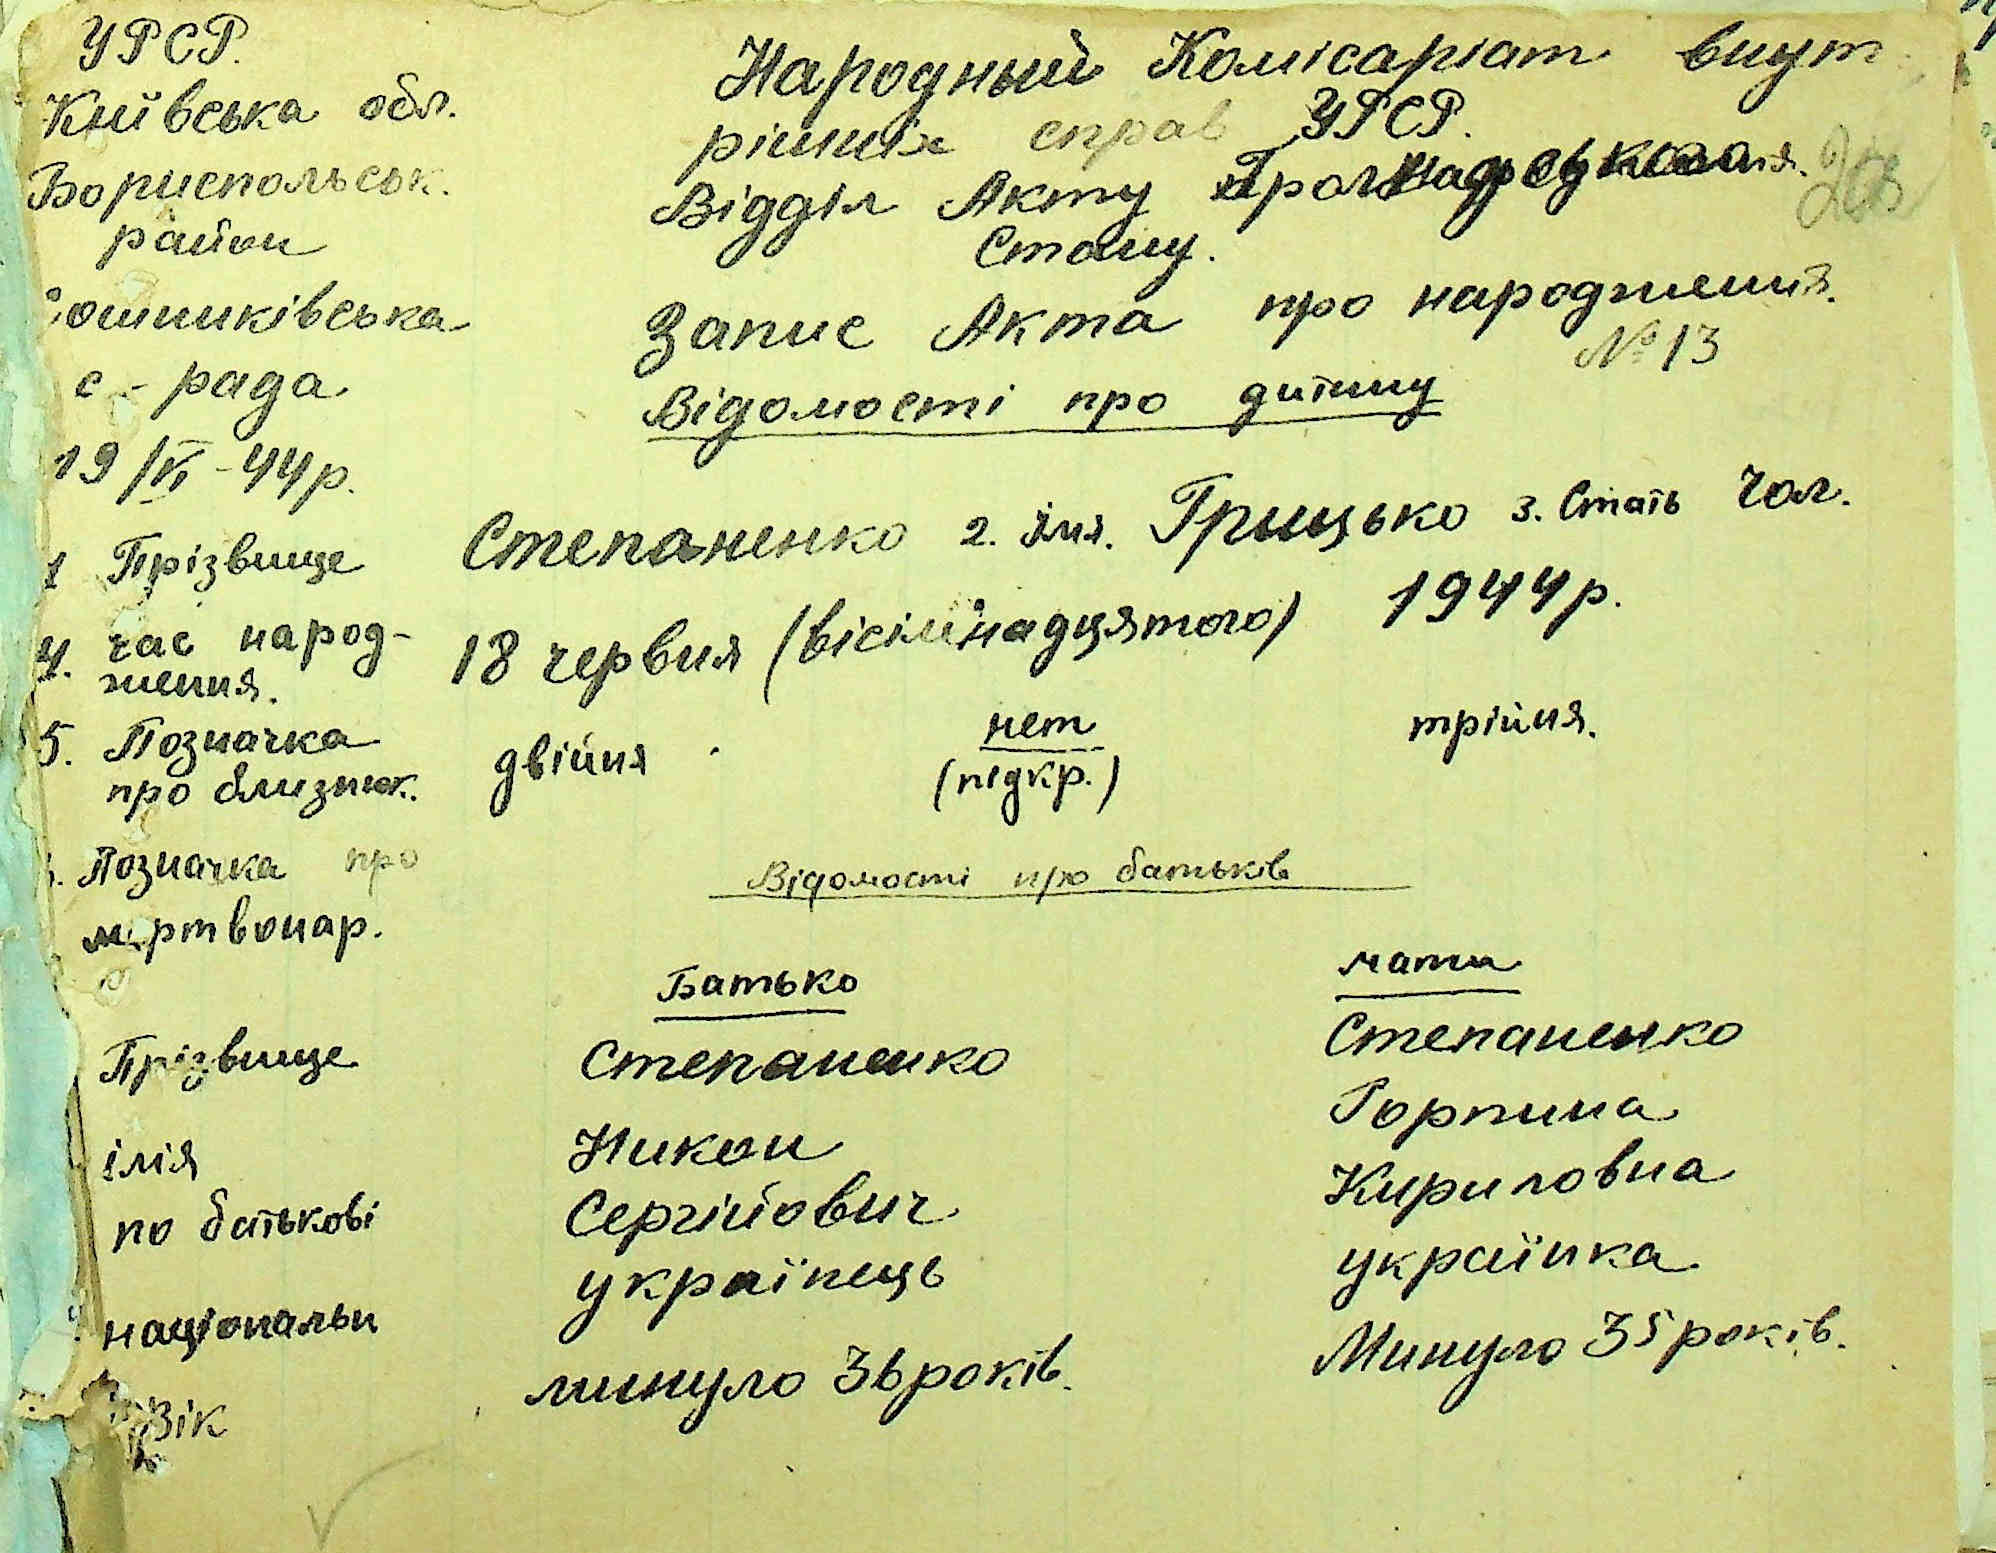 УРСР.
Київська обл.
Бориспольськ.
район
ошниківська
с - рада
19/VI - 44р.
Народный Комісаріат внут
рішніх справ УРСР.
Відділ Акту Громадського
Стану.
Запис Акта про народження.
№ 13
Відомості про дитину
1 Прізвище Степаненко 2. імя. Грицько 3. Стать Чол.
4. час народ-
ження. 18 червня (вісімнадцятого) 1944р.
5. Позначка
про близнюк. двійня нет трійня.
(підкр.)
Позначка про
мертвонар.
Відомості про батьків
Батько мати
Прізвище Степаненко Степаненко
імія Никон Горпина
по батькові Сергійович Кириловна
національн українець українка
Вік минуло 36 років. Минуло 35 років.